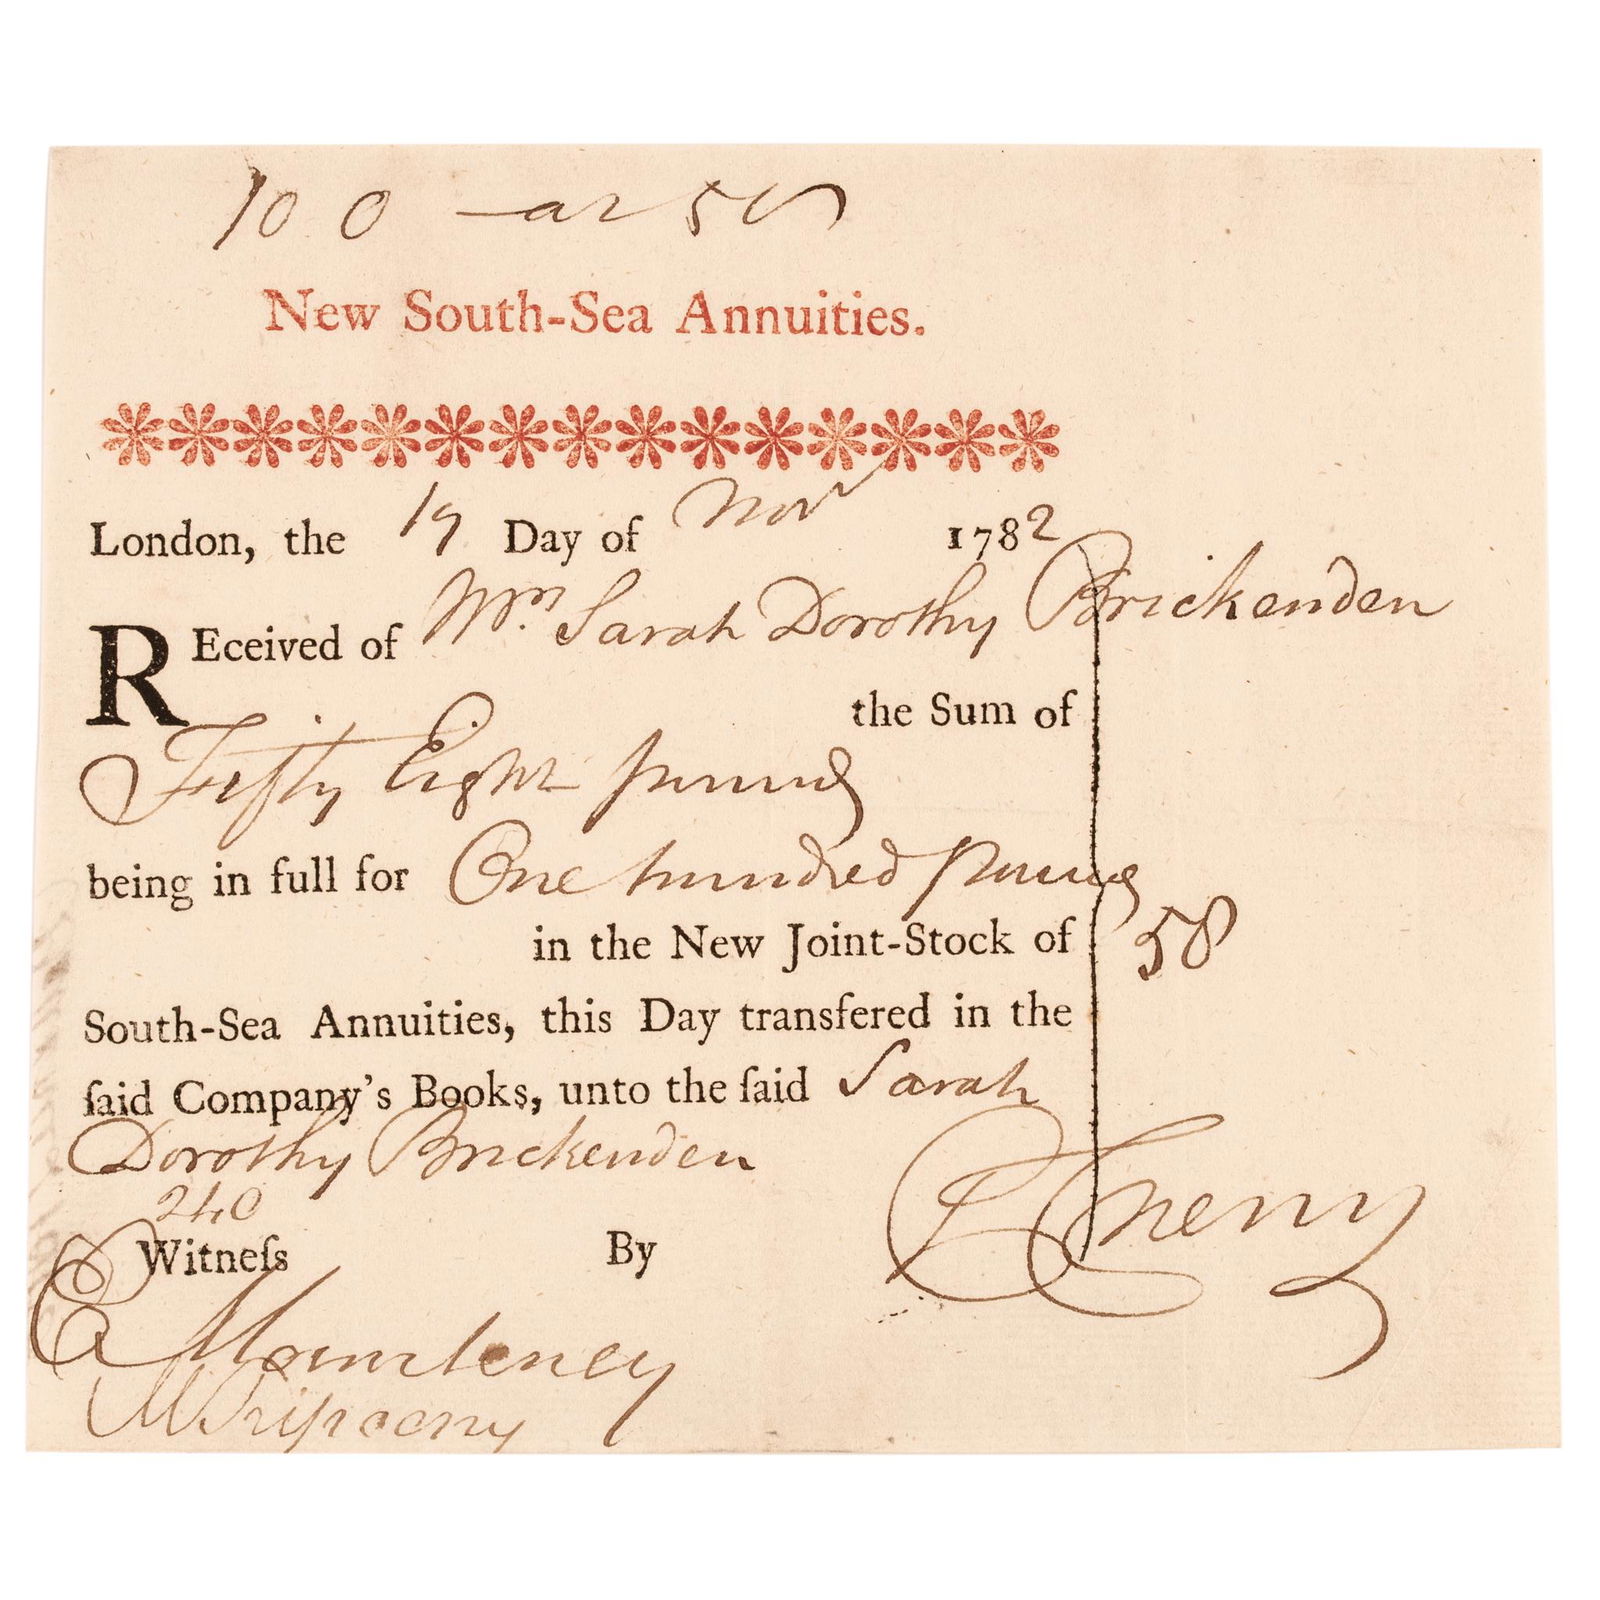 100 — at 58
New South-Sea Annuities.
London, the 19 Day of Novr 1782
REceived of Mrs. Sarah Dorothy Brickenden
the Sum of
Fifty Eight pounds
being in full for One hundred pounds
in the New Joint-Stock of 58
South-Sea Annuities, this Day transfered in the
ſaid Company's Books, unto the ſaid Sarah
Dorothy Brickenden
240
Witneſs By Cherry
Mounteney